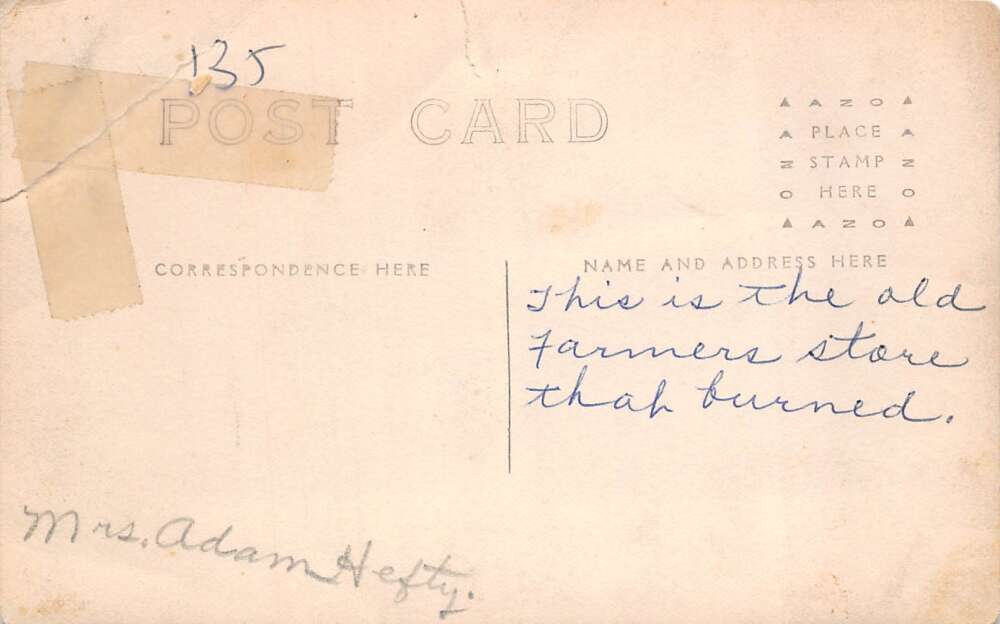 135
POST CARD
AZO
PLACE
STAMP
HERE
AZO
CORRESPONDENCE HERE
NAME AND ADDRESS HERE
This is the old
Farmers store
that burned.
Mrs. Adam Hefty.